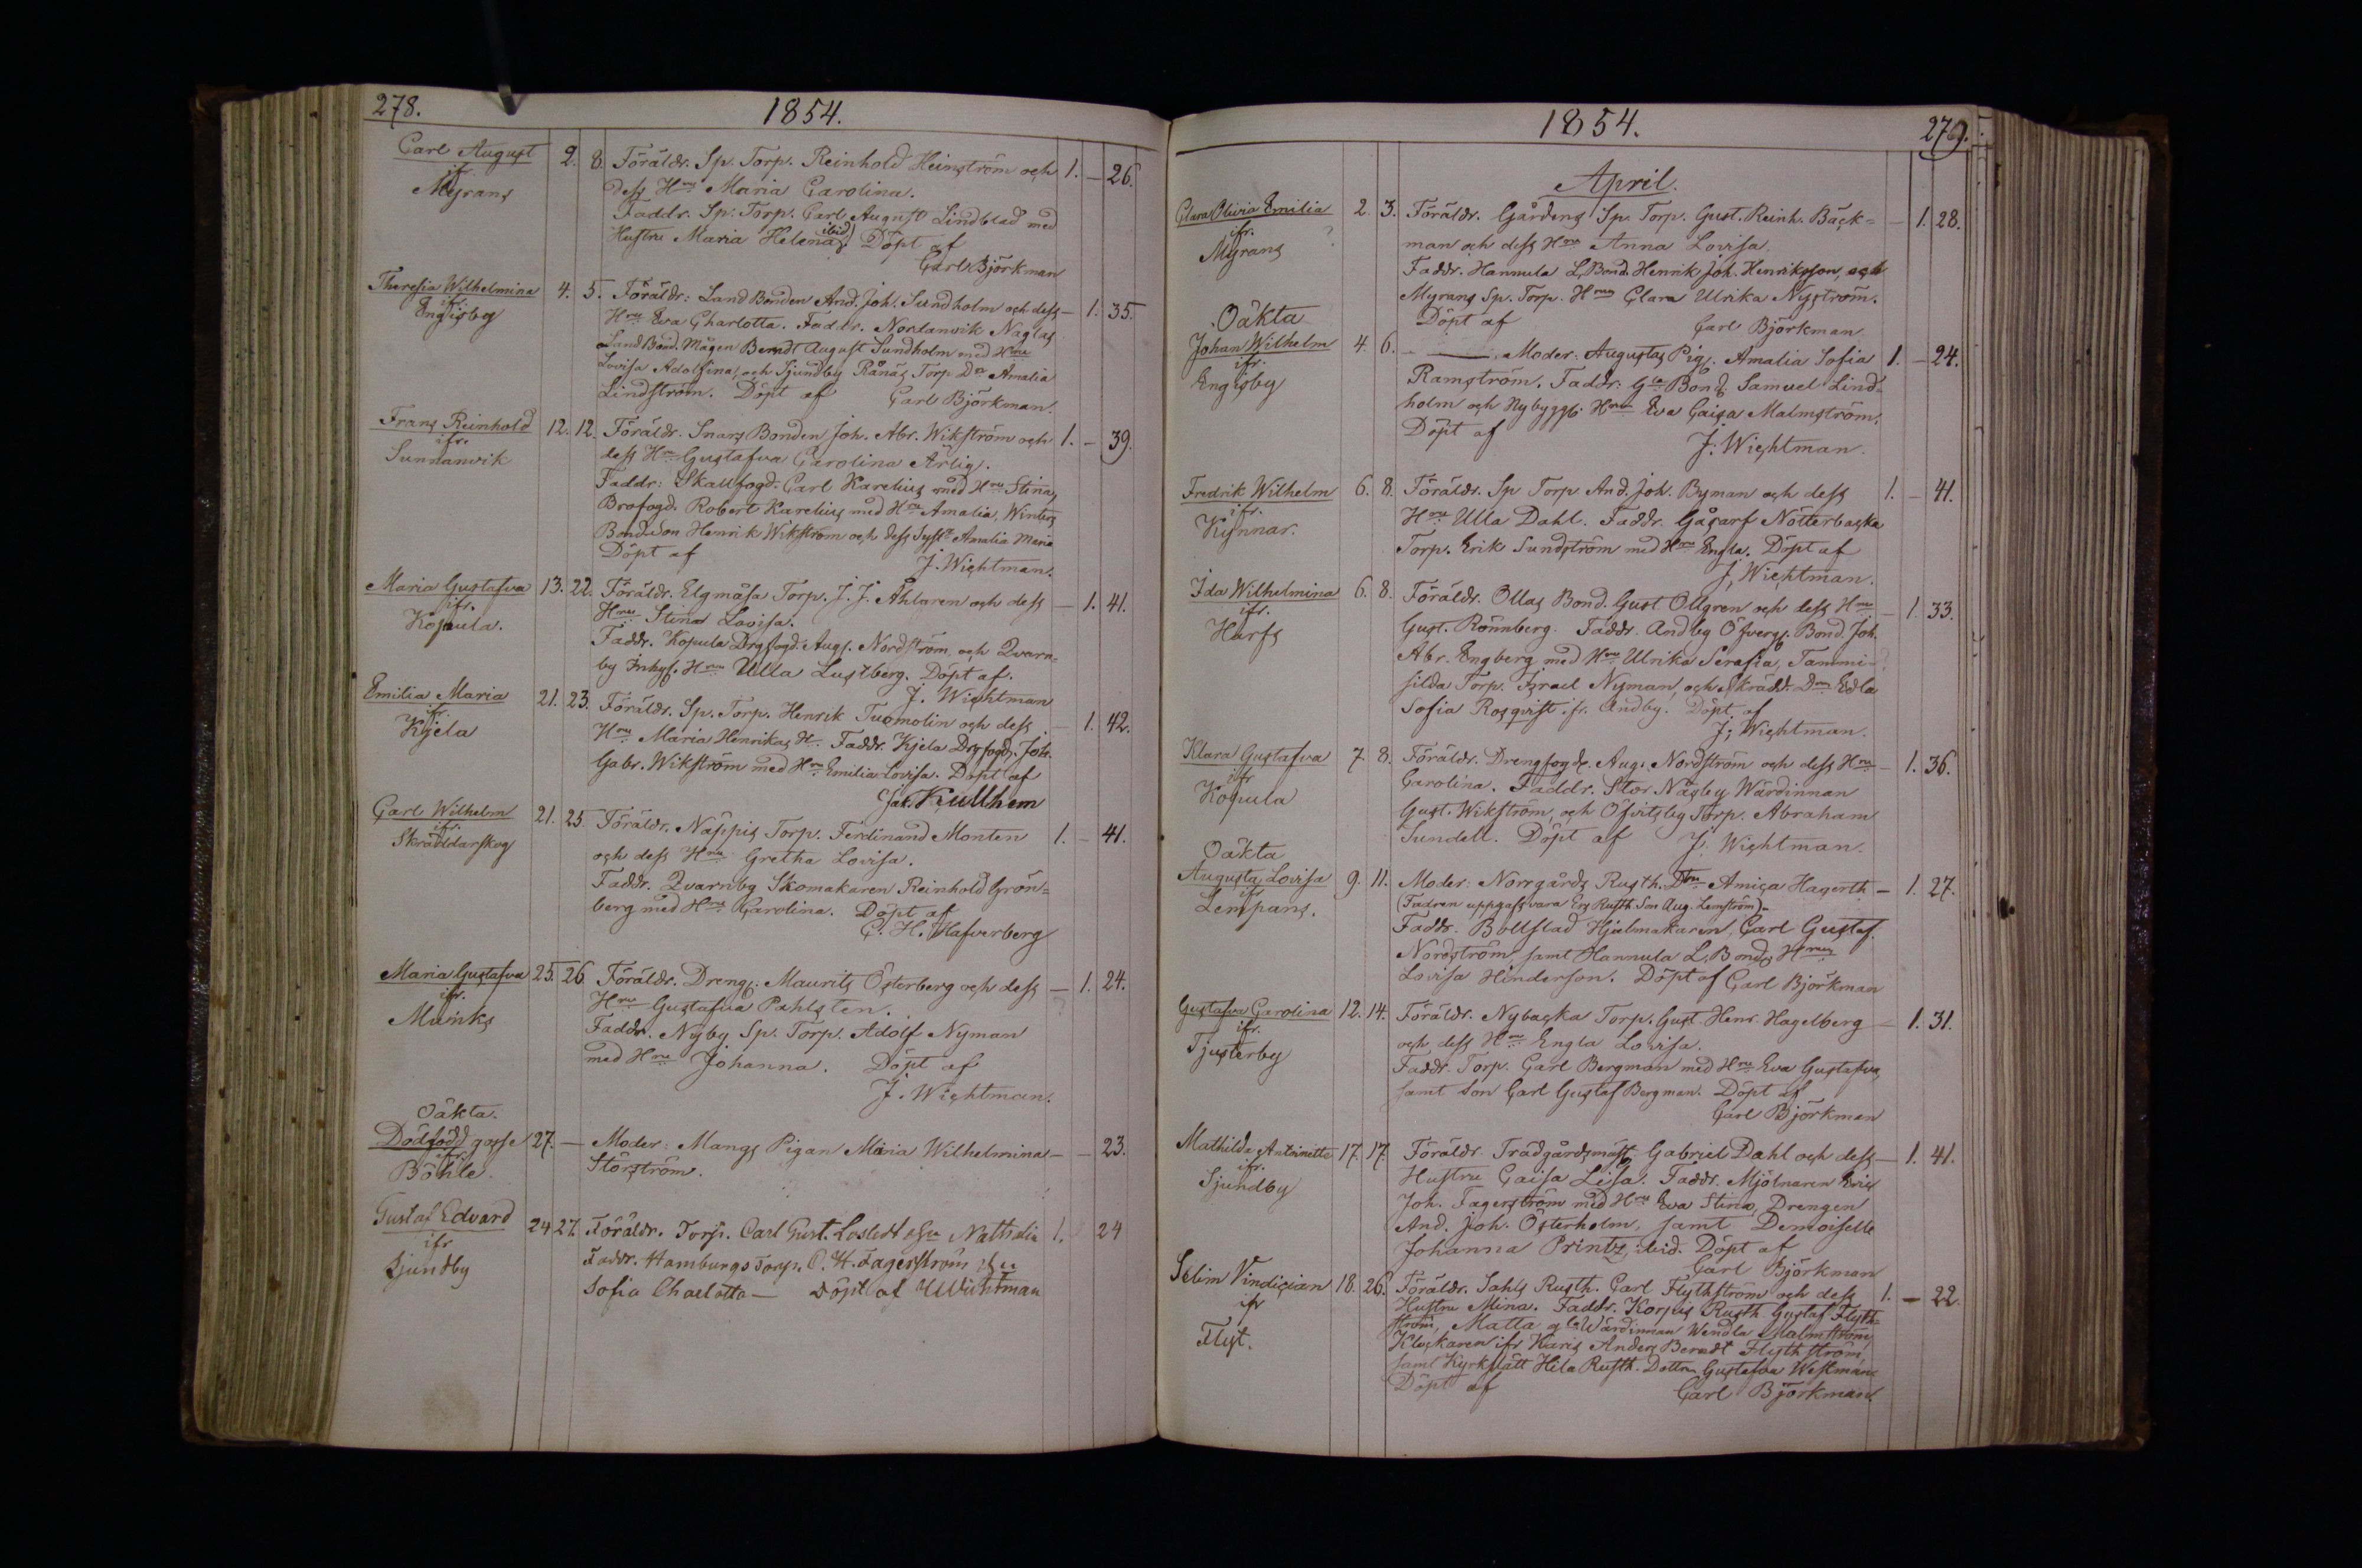 278.
1854.
Carl August
ifr.
Myrans
2. 8. Föräldr. Sp. Torp. Reinhold Heimström och 1. – 26.
dess Hru Maria Carolina.
Faddr. Sp. Torp. Carl August Lindblad med
Hustru Maria Helena, ibid. Döpt af
Carl Björkman
Theresia Wilhelmina
ifr.
Engisby
4. 5. Föräldr: Land Bonden And. Joh. Sundholm och dess – 1. 35.
Hru Eva Charlotta. Faddr. Norlanvik Naglas
Land Bond. Mågen Berndt August Sundholm med Hru
Lovisa Adolfina, och Sjundby Rånäs Torp. Dr Amalia
Lindström. Döpt af Carl Björkman.
Frans Reinhold
ifr.
Sunnanvik
12. 12. Föräldr. Snars Bonden Joh. Abr. Wikström och 1. – 39.
dess Hru Gustafva Carolina Ärlig.
Faddr: Skallfogd. Carl Karelius med Hru Stina,
Brofogd. Robert Karelius med Hru Amalia, Winters
Bondeson Henrik Wikström och dess Syst. Amalia Maria
Döpt af J. Wichtman.
Maria Gustafva
ifr.
Kopula.
13. 22. Föräldr. Elgmåsa Torp. J. J. Åhlgren och dess – 1. 41.
Hru Stina Lovisa.
Faddr. Kopula Drgfogd. Aug. Nordström och Qvarn-
by Inhys. Hru Ulla Lustberg. Döpt af.
J. Wichtman
Emilia Maria
ifr.
Kjela
21. 23. Föräldr. Sp. Torp. Henrik Tuomolin och dess – 1. 42.
Hru Maria Henrikas Dr. Faddr. Kjela Drgfogd. Joh.
Gabr. Wikström med Hru Emilia Lovisa. Döpt af
Jak. Kullhem
Carl Wilhelm
ifr.
Skräddarskog
21. 25. Föräldr. Näppis Torp. Ferdinand Monten 1. – 41.
och dess Hru Gretha Lovisa.
Faddr. Qvarnby Skomakaren Reinhold Grön=
berg med Hru Carolina. Döpt af
C. H. Hafverberg
Maria Gustafva
ifr.
Munks
25. 26. Föräldr. Dreng. Maurits Österberg och dess – 1. 24.
Hru Gustafva Pahlsten.
Faddr. Nyby Sp. Torp. Adolf Nyman
med Hru Johanna. Döpt af
J. Wichtman.
Oäkta.
Dödfödd gosse
ifr.
Böhle.
27. – Moder: Mangs Pigan Maria Wilhelmina – – 23.
Störström.
Gustaf Edvard
ifr
Sjundby
24 27. Föräldr. Torp. Carl Gust. Lostedt Hru Nathalia 1. 24
Faddr. Hamburgs Torp. C. H. Fagerström Hru
Sofia Charlotta – Döpt af Wichtman
1854.
279.
April.
Clara Olivia Emilia
ifr.
Myrans
2. 3. Föräldr. Gårdens Sp. Torp. Gust. Reinh. Bäck= – 1. 28.
man och dess Hru Anna Lovisa.
Faddr. Hannula L. Bond. Henrik Joh. Henriksson, och
Myrans Sp. Torp. Hrun Clara Ulrika Nyström.
Döpt af Carl Björkman
Oäkta
Johan Wilhelm
ifr
Engisby
4. 6. Moder: Augustas Pig. Amalia Sofia 1. – 24.
Ramström. Faddr: Gla Bond. Samuel Lind-
holm och Nybygg. Hru Eva Caisa Malmström.
Döpt af J. Wichtman.
Fredrik Wilhelm
ifr.
Kynnar.
6. 8. Föräldr. Sp Torp. And. Joh. Byman och dess 1. – 41.
Hru Ulla Dahl. Faddr. Gåsarf Nötterbacka
Torp. Erik Sundström med Hru Engla. Döpt af
J. Wichtman.
Ida Wilhelmina
ifr.
Harfs
6. 8. Föräldr. Ollas Bond. Gust Ollgren och dess Hru – 1. 33.
Gust. Rönnberg. Faddr. Andby Öfverg. Bond. Joh.
Abr. Engberg med Hru Ulrika Serafia, Tammi-
silda Torp. Israel Nyman, och Skrädd. Dr Edla
Sofia Rosqvist fr. Andby. Döpt af
J. Wichtman.
Klara Gustafva
ifr
Kopula
7. 8. Föräldr. Drengfogd. Aug. Nordström och dess Hru – 1. 36.
Carolina. Faddr. Stor Näsby Wärdinnan
Gust. Wikström, och Öfvitsby Torp. Abraham
Sundell. Döpt af J. Wichtman.
Oäkta
Augusta Lovisa
ifr
Lempans.
9. 11. Moder: Norrgårds Rusth. Dtrn Amica Hagerth – 1. 27.
(Fadren uppgafs vara Ers Rusth. Son Aug. Lemström)
Faddr. Bollstad Hjulmakaren, Carl Gustaf.
Nordström, samt Hannula L. Bonds Hru
Lovisa Hinderson. Döpt af Carl Björkman
Gustafva Carolina
ifr.
Tjusterby
12. 14. Föräldr. Nybacka Torp. Gust. Henr. Hagelberg – 1. 31.
och dess Hru Engla Lovisa.
Faddr. Torp. Carl Bergman med Hru Eva Gustafva,
samt son Carl Gustaf Bergman. Döpt af
Carl Björkman
Mathilda Antoinette
ifr.
Sjundby
17. 17. Föräldr. Trädgårdsmäst. Gabriel Dahl och dess – 1. 41.
Hustru Caisa Lisa. Faddr. Mjölnaren Eric
Joh. Fagerström med Hru Eva Stina, Drengen
And. Joh. Österholm, samt Demoiselle
Johanna Printz, ibid. Döpt af
Carl Björkman
Selim Vindician
ifr
Flyt.
18. 26. Föräldr. Sahls Rusth. Carl Flythström och dess 1. – 22.
Hustru Mina. Faddr. Korpus Rusth Gustaf Flyth=
ström, Matta gla Wärdinnan Wendla Malmström,
Klockaren ifr Karis Anders Berndt Flythström,
samt Kyrkslätt Hila Rusth. Dottren Gustafva Westman.
Döpt af Carl Björkman.